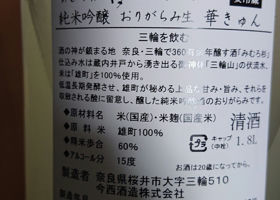 純米吟醸 おりがらみ生 華きゅん
三輪を飲む
酒の神が鎮まる地 奈良・三輪で360年醸す酒「みむろ杉」
仕込み水は蔵内井戸から湧き出る御神体「三輪山」の伏流水、
米は「雄町」を100%使用。
低温長期発酵させ、雄町が秘める上品な甘み・旨み、それらを
収束される酸に留意し、醸した純米吟醸のおりがらみです。
●原材料名 米(国産)・米麹(国産米)
●原料米 雄町100%
●精米歩合 60%
●アルコール分 15度
清酒
キャップ(中栓)
1.8L
お酒は20歳になってから。
製造者 奈良県桜井市大字三輪510
今西酒造株式会社
製造年